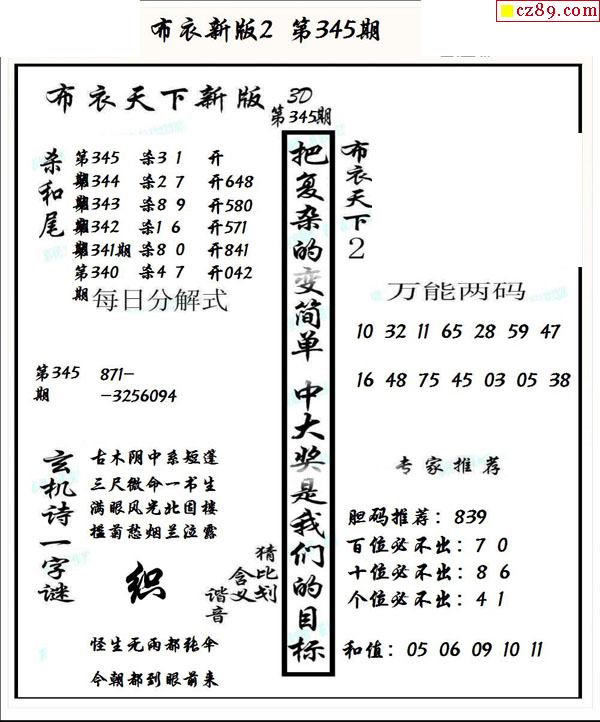 cz89.com
布衣新版2 第345期
布衣天下新版 3D
第345期
杀和尾
第345期 杀31 开
第344期 杀27 开648
第343期 杀89 开580
第342期 杀16 开571
第341期 杀80 开841
第340期 杀47 开042
每日分解式
第345期 871-
-3256094
把复杂的变简单 中大奖是我们的目标
布衣天下2
万能两码
10 32 11 65 28 59 47
16 48 75 45 03 05 38
玄机诗一字谜
古木阴中系短蓬
三尺微命一书生
满眼风光北固楼
槛菊愁烟兰泣露
织
猜比划
含义
谐音
怪生无雨都张伞
今朝都到眼前来
专家推荐
胆码推荐：839
百位必不出：7 0
十位必不出：8 6
个位必不出：4 1
和值：05 06 09 10 11